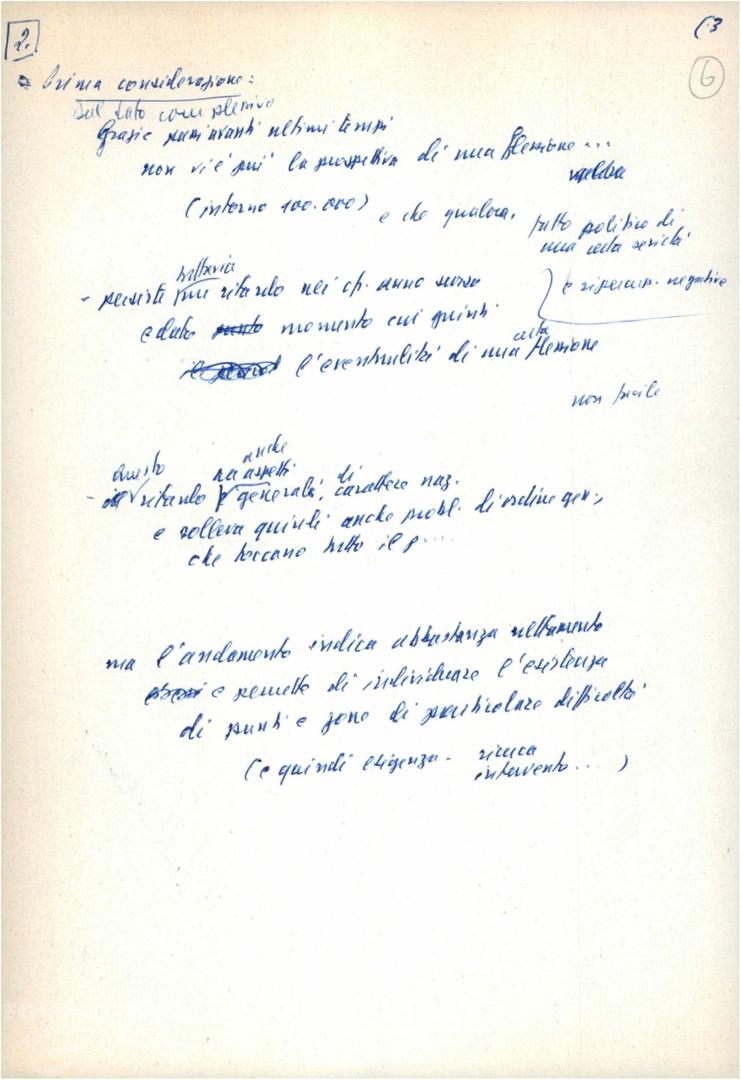 2.
(3
6
Prima considerazione:
Sul dato complessivo
Grazie passi avanti ultimi tempi
non vi è più la prospettiva di una flessione...
(intorno 100.000) e che qualora.
fatto politico di
una certa serietà
e ripercuss. negative
tuttavia
- persiste un ritardo nei cf. anno scorso
e dato momento cui giunti
certa
l'eventualità di una flessione
non facile
questo
anche
ha aspetti
- ritardo generali, di carattere naz.
e solleva quindi anche probl. di ordine gen.,
che toccano tutto il p....
ma l'andamento indica abbastanza nettamente
e permette di individuare l'esistenza
di punti e zone di particolare difficoltà
(e quindi esigenza - ricerca
intervento... )